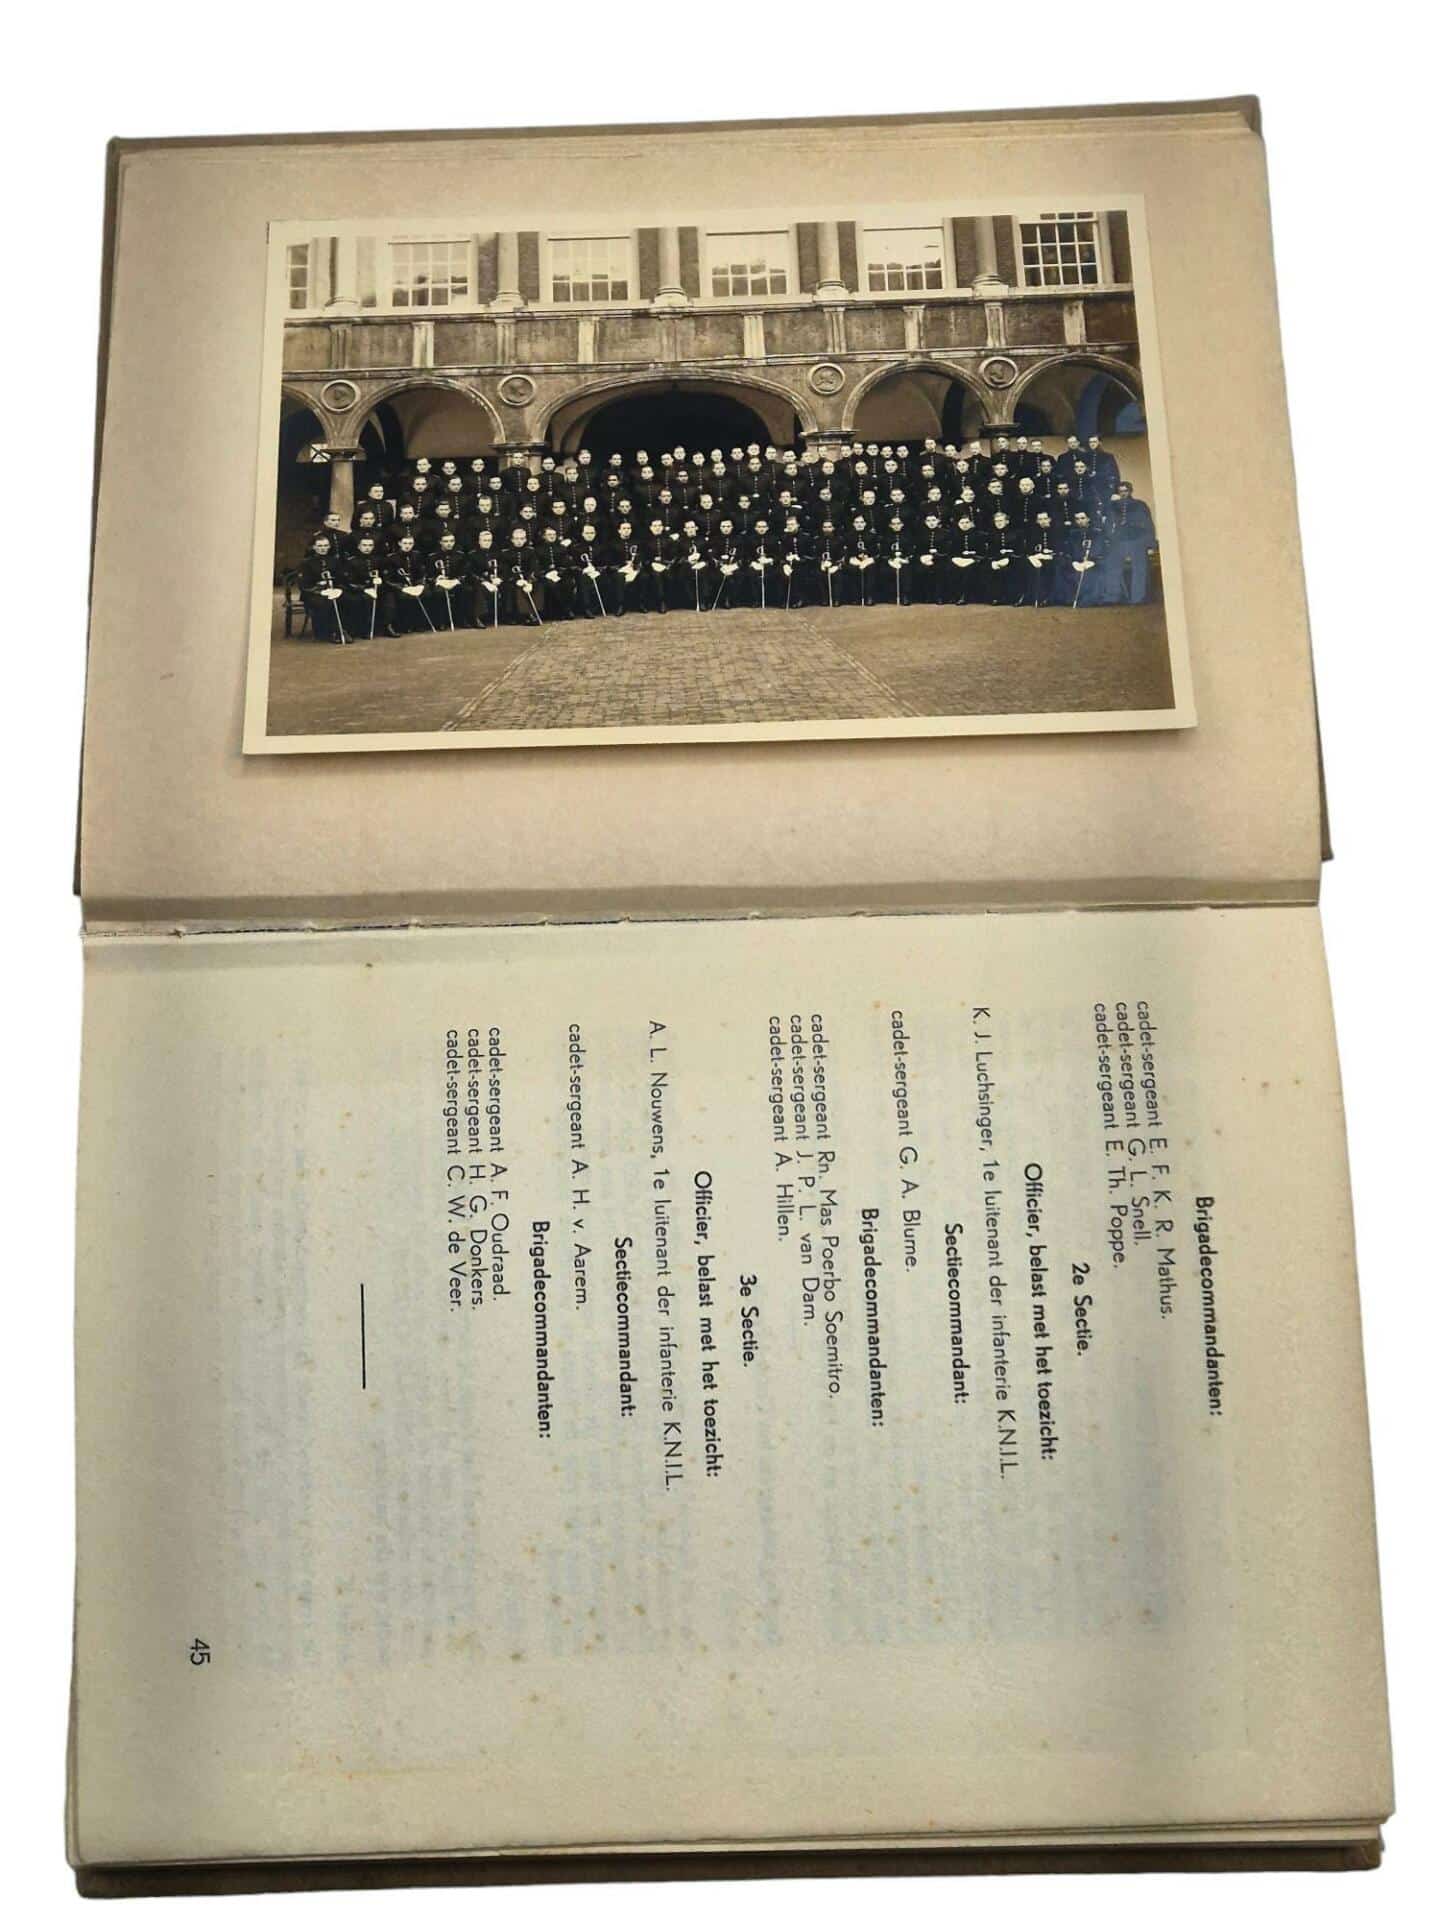 Brigadecommandanten:
cadet-sergeant E. F. K. R. Mathus.
cadet-sergeant G. L. Snell.
cadet-sergeant E. Th. Poppe.
2e Sectie.
Officier, belast met het toezicht:
K. J. Luchsinger, 1e luitenant der infanterie K.N.I.L.
Sectiecommandant:
cadet-sergeant G. A. Blume.
Brigadecommandanten:
cadet-sergeant Rn. Mas Poerbo Soemitro.
cadet-sergeant J. P. L. van Dam.
cadet-sergeant A. Hillen.
3e Sectie.
Officier, belast met het toezicht:
A. L. Nouwens, 1e luitenant der infanterie K.N.I.L.
Sectiecommandant:
cadet-sergeant A. H. v. Aarem.
Brigadecommandanten:
cadet-sergeant A. F. Oudraad.
cadet-sergeant H. G. Donkers.
cadet-sergeant C. W. de Veer.
45